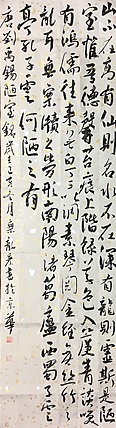 山不在高有仙則名水不在深有龍則靈斯是陋
室惟吾德馨苔痕上階綠草色入簾青談笑
有鴻儒往來無白丁可以調素琴閱金經無絲竹之
亂耳無案牘之勞形南陽諸葛廬西蜀子雲
亭孔子云何陋之有
唐劉禹錫陋室銘 己亥 月 書於京華